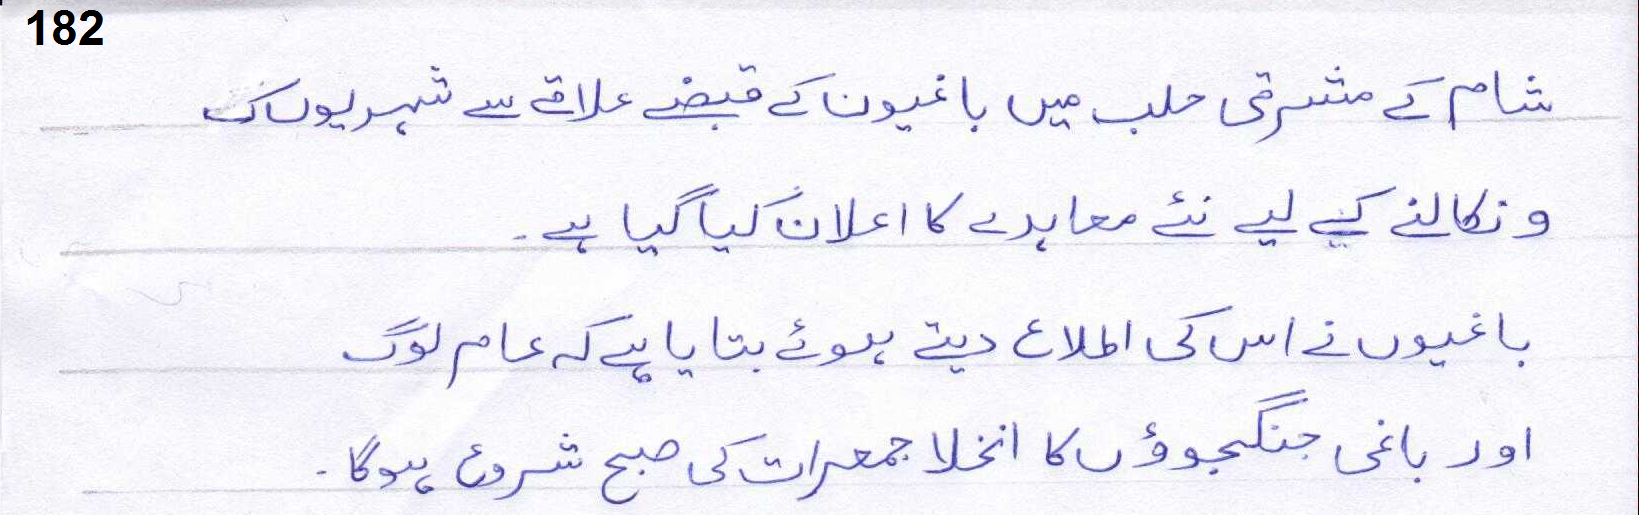 182
شام کے مشرقی حلب میں باغیون کے قبضے علاقے سے شہریوں ک
و نکالنے کیے لیے نئے معاہدے کا اعلان کیا گیا ہے۔
باغیوں نے اس کی اطلاع دیتے ہوئے بتایا ہے کہ عام لوگ
اور باغی جنگجوؤں کا انخلا جمعرات کی صبح شروع ہوگا۔